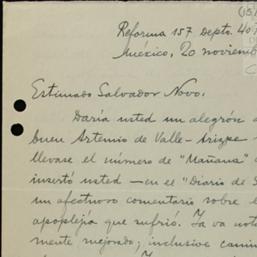 (15/
Reforma 157 Depto. 401
México, 20 noviembre
Estimado Salvador Novo:
Daría usted un alegrón a
buen Artemio de Valle-Arizpe
llevase el número de "Mañana"
insertó usted — en el "Diario de
un afectuoso comentario sobre
apoplejía que sufrió. Ya va
mente mejorado; inclusive